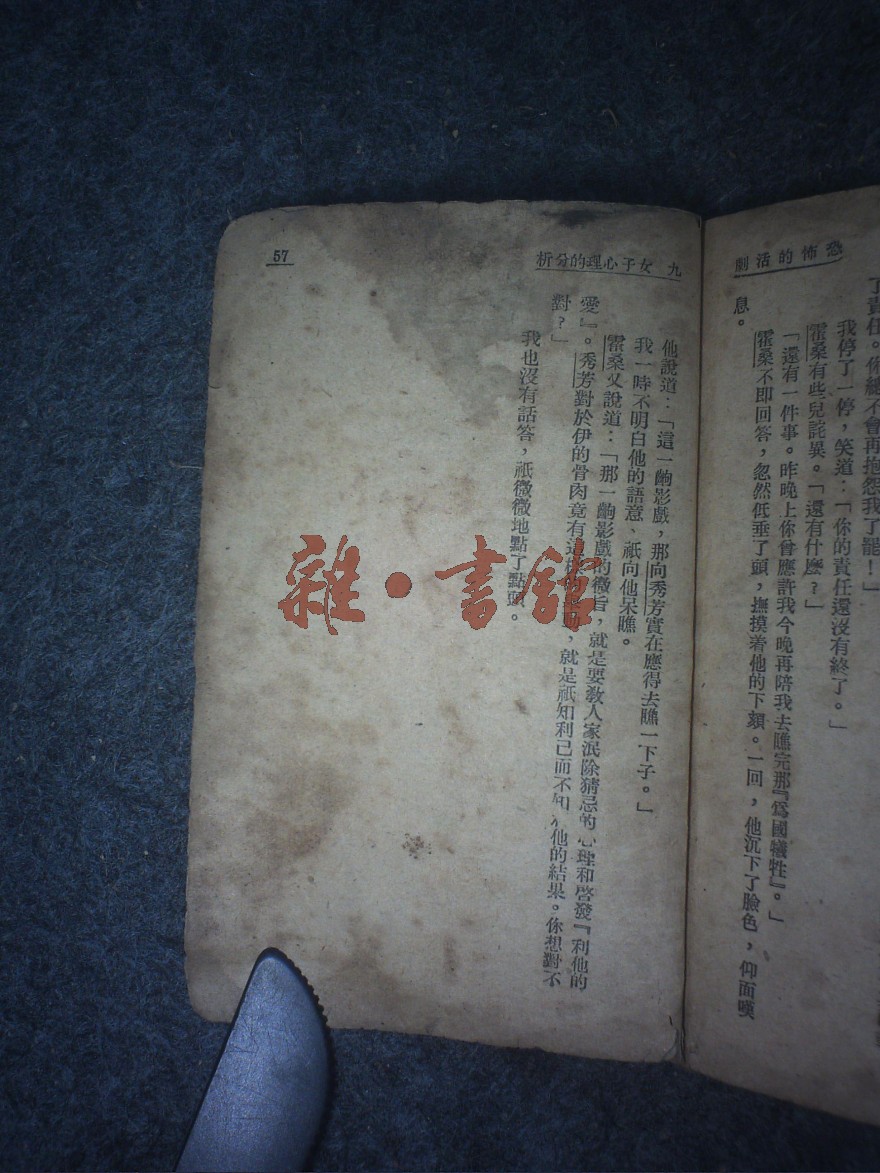 恐怖的活劇
了責任。你總不會再抱怨我了罷！」
我停了一停，笑道：「你的責任還沒有終了。」
霍桑有些兒詫異。「還有什麼？」
「還有一件事。昨晚上你曾應許我今晚再陪我去瞧完那『爲國犧牲』。」
霍桑不卽回答，忽然低垂了頭，撫摸着他的下頦。一回，他沉下了臉色，仰面嘆
息。
九 女子心理的分析
57
他說道：「這一齣影戲，那向秀芳實在應得去瞧一下子。」
我一時不明白他的語意，祇向他呆瞧。
霍桑又說道：「那一齣影戲的微旨，就是要教人家泯除猜忌的心理和啓發『利他的
愛』。秀芳對於伊的骨肉竟有這，就是祇知利己而不知利他的結果。你想對不
對？」
我也沒有話答，祇微微地點了點頭。
雜·書館